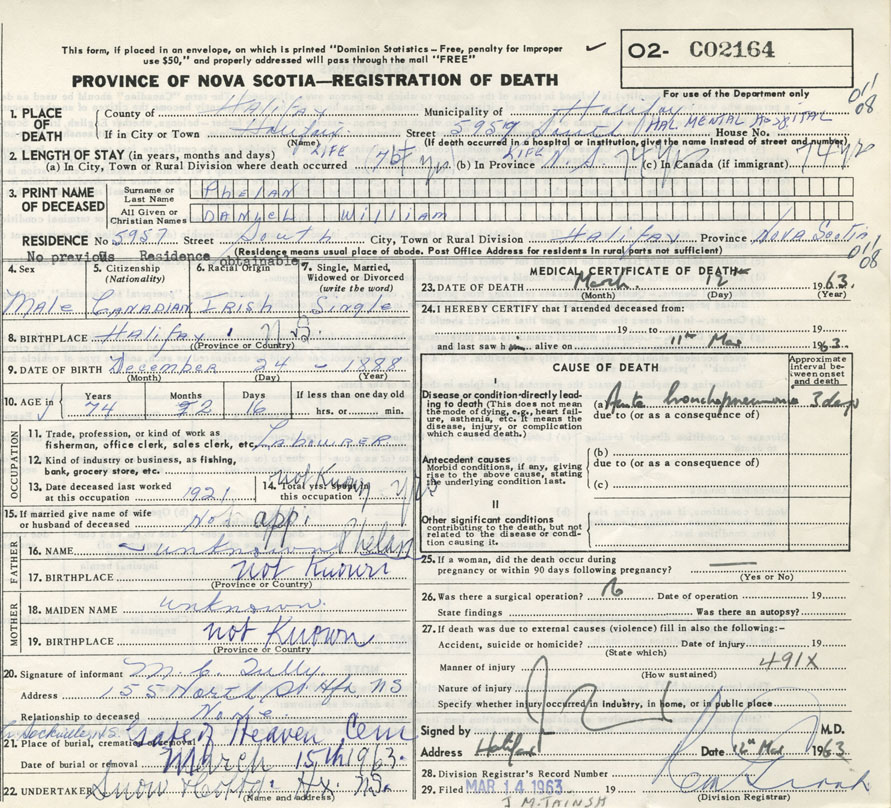 This form, if placed in an envelope, on which is printed "Dominion Statistics – Free, penalty for improper
use $50," and properly addressed will pass through the mail "FREE"
O2- C02164
PROVINCE OF NOVA SCOTIA—REGISTRATION OF DEATH
For use of the Department only
011
08
1. PLACE OF DEATH
County of Halifax Municipality of Halifax
HAL MENTAL HOSPITAL
If in City or Town Halifax Street 5957 South House No.
(Name) (If death occurred in a hospital or institution, give the name instead of street and number)
2. LENGTH OF STAY (in years, months and days)
LIFE LIFE
(a) In City, Town or Rural Division where death occurred yrs (b) In Province N.S. (c) In Canada (if immigrant) 74 yrs
3. PRINT NAME OF DECEASED
Surname or Last Name PHELAN
All Given or Christian Names DANIEL William
RESIDENCE No 5957 Street South City, Town or Rural Division Halifax Province Nova Scotia
(Residence means usual place of abode. Post Office Address for residents in rural parts not sufficient)
No previous Residence obtainable
011
08
4. Sex 5. Citizenship (Nationality) 6. Racial Origin 7. Single, Married, Widowed or Divorced (write the word)
Male CANADIAN IRISH Single
8. BIRTHPLACE Halifax N.S.
(Province or Country)
9. DATE OF BIRTH December 24 - 1888
(Month) (Day) (Year)
10. AGE in Years Months Days If less than one day old
74 2 16 hrs. or min.
OCCUPATION
11. Trade, profession, or kind of work as fisherman, office clerk, sales clerk, etc. LABOURER
12. Kind of industry or business, as fishing, bank, grocery store, etc.
13. Date deceased last worked at this occupation 1921
14. Total yrs. spent in this occupation not Known
15. If married give name of wife or husband of deceased Not appl
FATHER
16. NAME unknown Phelan
17. BIRTHPLACE not Known
(Province or Country)
MOTHER
18. MAIDEN NAME unknown
19. BIRTHPLACE not Known
(Province or Country)
20. Signature of informant M. C. Tully
Address 155 North St Hfx NS
Relationship to deceased None
Sackville N.S. Gate of Heaven Cem
21. Place of burial, cremation or removal
Date of burial or removal March 15th 1963
22. UNDERTAKER Snow Hx N.S.
(Name and address)
MEDICAL CERTIFICATE OF DEATH
23. DATE OF DEATH March 12th 1963
(Month) (Day) (Year)
24. I HEREBY CERTIFY that I attended deceased from:
19 to 19
and last saw him alive on 11th Mar 1963
CAUSE OF DEATH
Approximate interval between onset and death
I
Disease or condition directly leading to death (This does not mean the mode of dying, e.g., heart failure, asthenia, etc. It means the disease, injury, or complication which caused death.)
(a) Acute bronchopneumonia 3 days
due to (or as a consequence of)
Antecedent causes
Morbid conditions, if any, giving rise to the above cause, stating the underlying condition last.
(b)
due to (or as a consequence of)
(c)
II
Other significant conditions
contributing to the death, but not related to the disease or condition causing it.
25. If a woman, did the death occur during pregnancy or within 90 days following pregnancy? —
(Yes or No)
26. Was there a surgical operation? Date of operation 19
State findings Was there an autopsy?
27. If death was due to external causes (violence) fill in also the following:-
Accident, suicide or homicide? Date of injury 19
(State which)
Manner of injury 491X
(How sustained)
Nature of injury
Specify whether injury occurred in industry, in home, or in public place
Signed by M.D.
Address Halifax Date 12th Mar 1963
28. Division Registrar's Record Number
29. Filed MAR 14 1963 19
(Division Registrar)